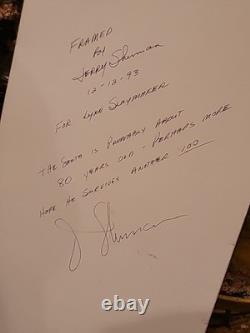 FRAMED
BY
JERRY Sherman
12-12-93
FOR LYNN SLAYMAKER
THE SANTA IS PROBABLY ABOUT
80 YEARS OLD - PERHAPS MORE
HOPE HE SURVIVES ANOTHER 100
J Sherman
ebay